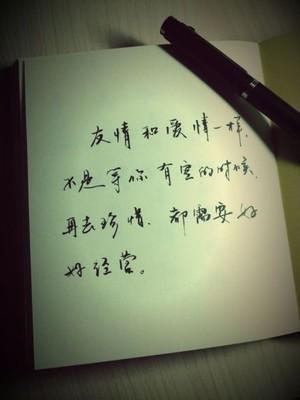 友情和爱情一样,
不是等你有空的时候,
再去珍惜、都需要好
好经营。